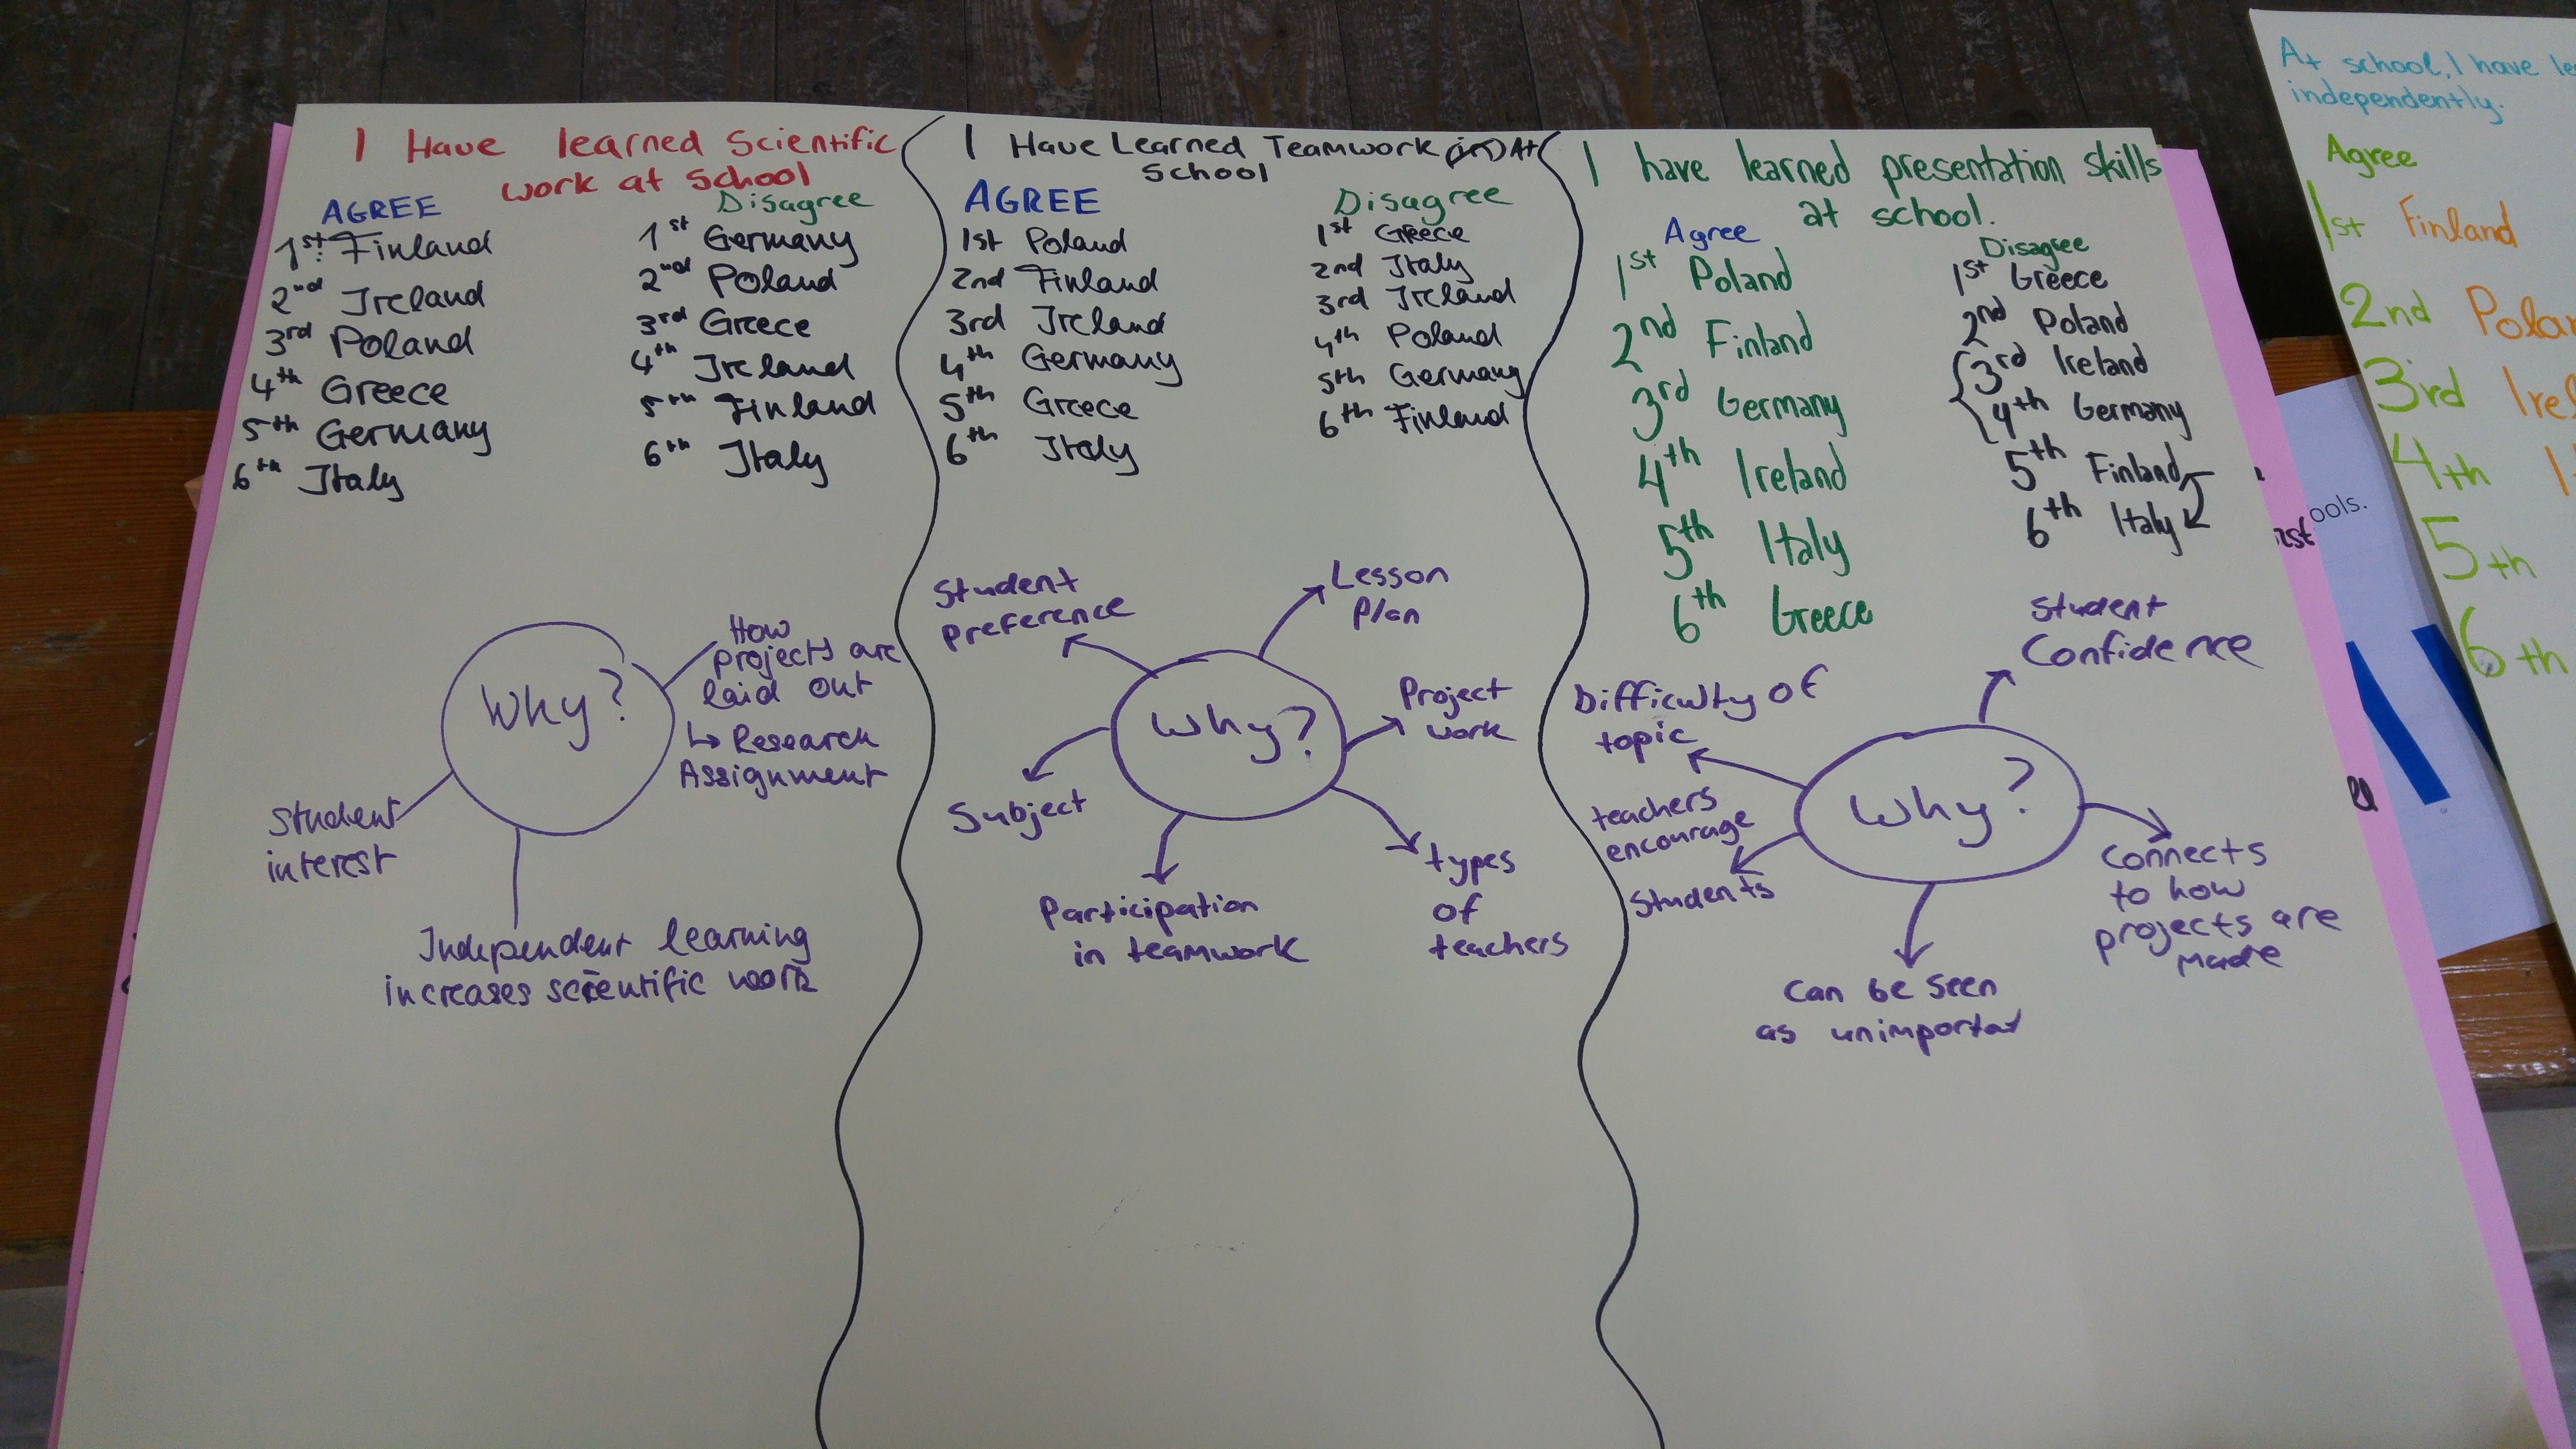 I Have learned Scientific
work at School
AGREE
1st Finland
2nd Ireland
3rd Poland
4th Greece
5th Germany
6th Italy
Disagree
1st Germany
2nd Poland
3rd Greece
4th Ireland
5th Finland
6th Italy
Why?
How
projects are
laid out
↳ Research
Assignment
Student
interest
Independent learning
increases scientific work
I Have Learned Teamwork (in) At
School
AGREE
1st Poland
2nd Finland
3rd Ireland
4th Germany
5th Greece
6th Italy
Disagree
1st Greece
2nd Italy
3rd Ireland
4th Poland
5th Germany
6th Finland
Why?
Student
preference
Lesson
Plan
Project
work
Subject
Participation
in teamwork
types
of
teachers
I have learned presentation skills
at school.
Agree
1st Poland
2nd Finland
3rd Germany
4th Ireland
5th Italy
6th Greece
Disagree
1st Greece
2nd Poland
3rd Ireland
4th Germany
5th Finland
6th Italy
Why?
Student
Confidence
Difficulty of
topic
teachers
encourage
Students
Connects
to how
projects are
made
Can be seen
as unimportat
At school, I have le
independently.
Agree
1st Finland
2nd Pola
3rd Irel
4th
5th
6th
ools.